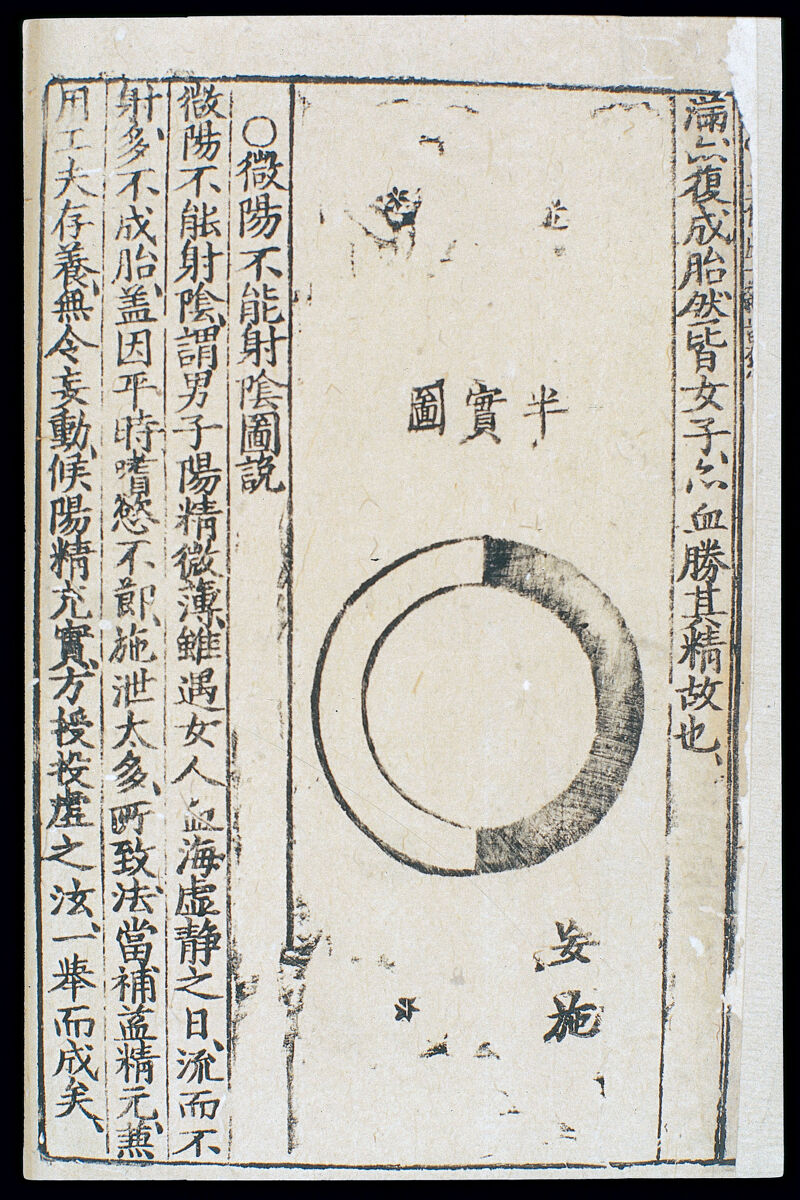 滿亦復成胎然皆女子亦血勝其精故也、
半實圖
妄施
○微陽不能射陰圖說
微陽不能射陰、謂男子陽精微薄、雖遇女人血海虛靜之日、流而不
射、多不成胎、盖因平時嗜慾不節、施泄太多、所致、法當補益精元、兼
用工夫存養、無令妄動、候陽精充實、方授投虛之法、一舉而成矣、